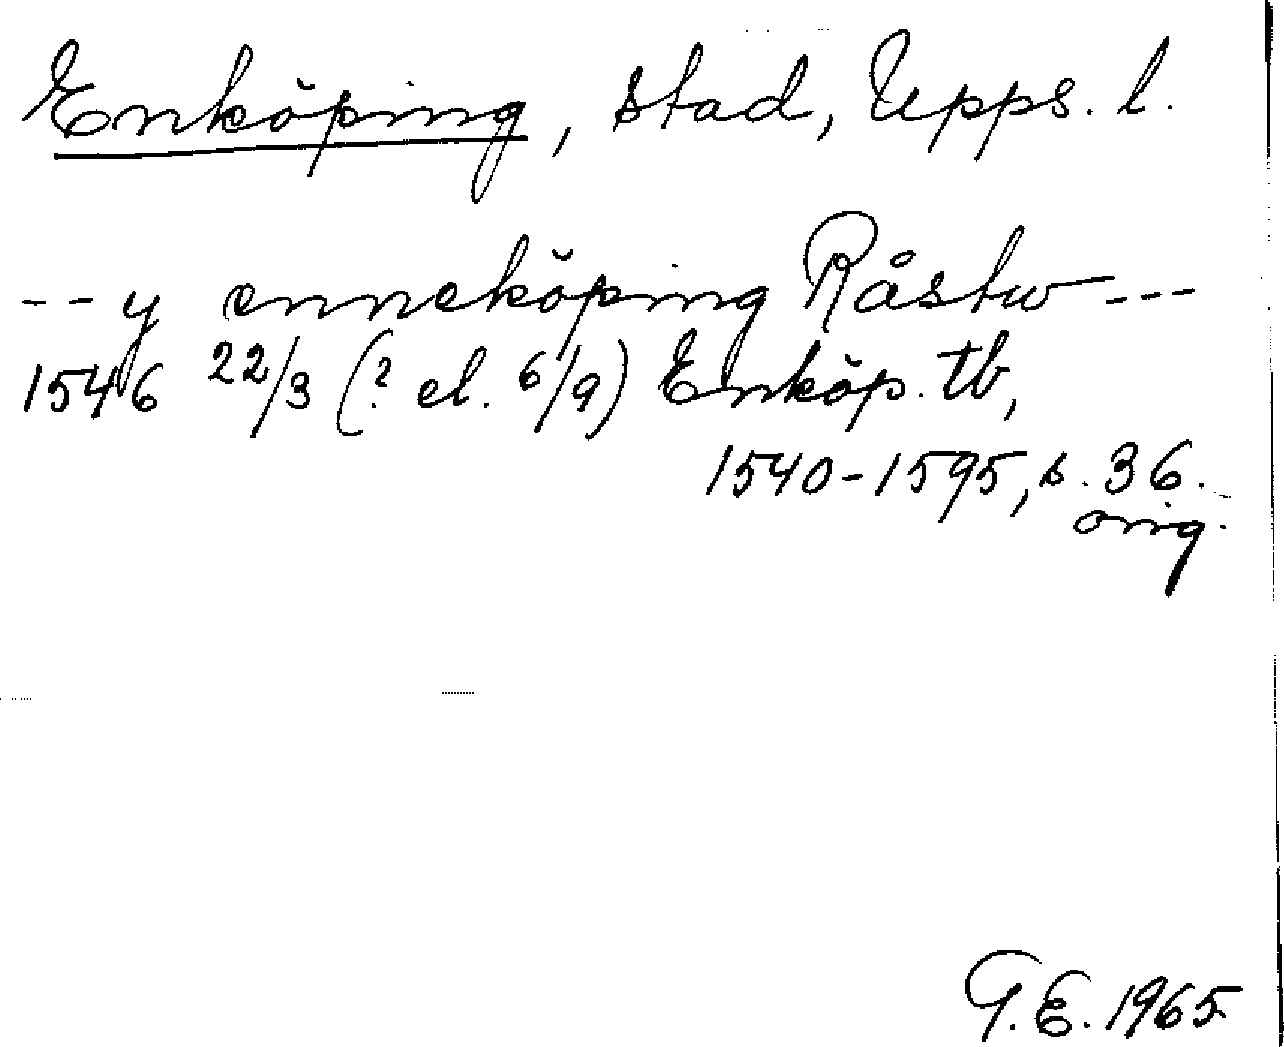 Enköping, stad, Upps. l.
-- y enneköping Råstw ---
1546 22/3 (? el. 6/9) Enköp. tb,
1540-1595, s. 36.
orig.
G.E. 1965